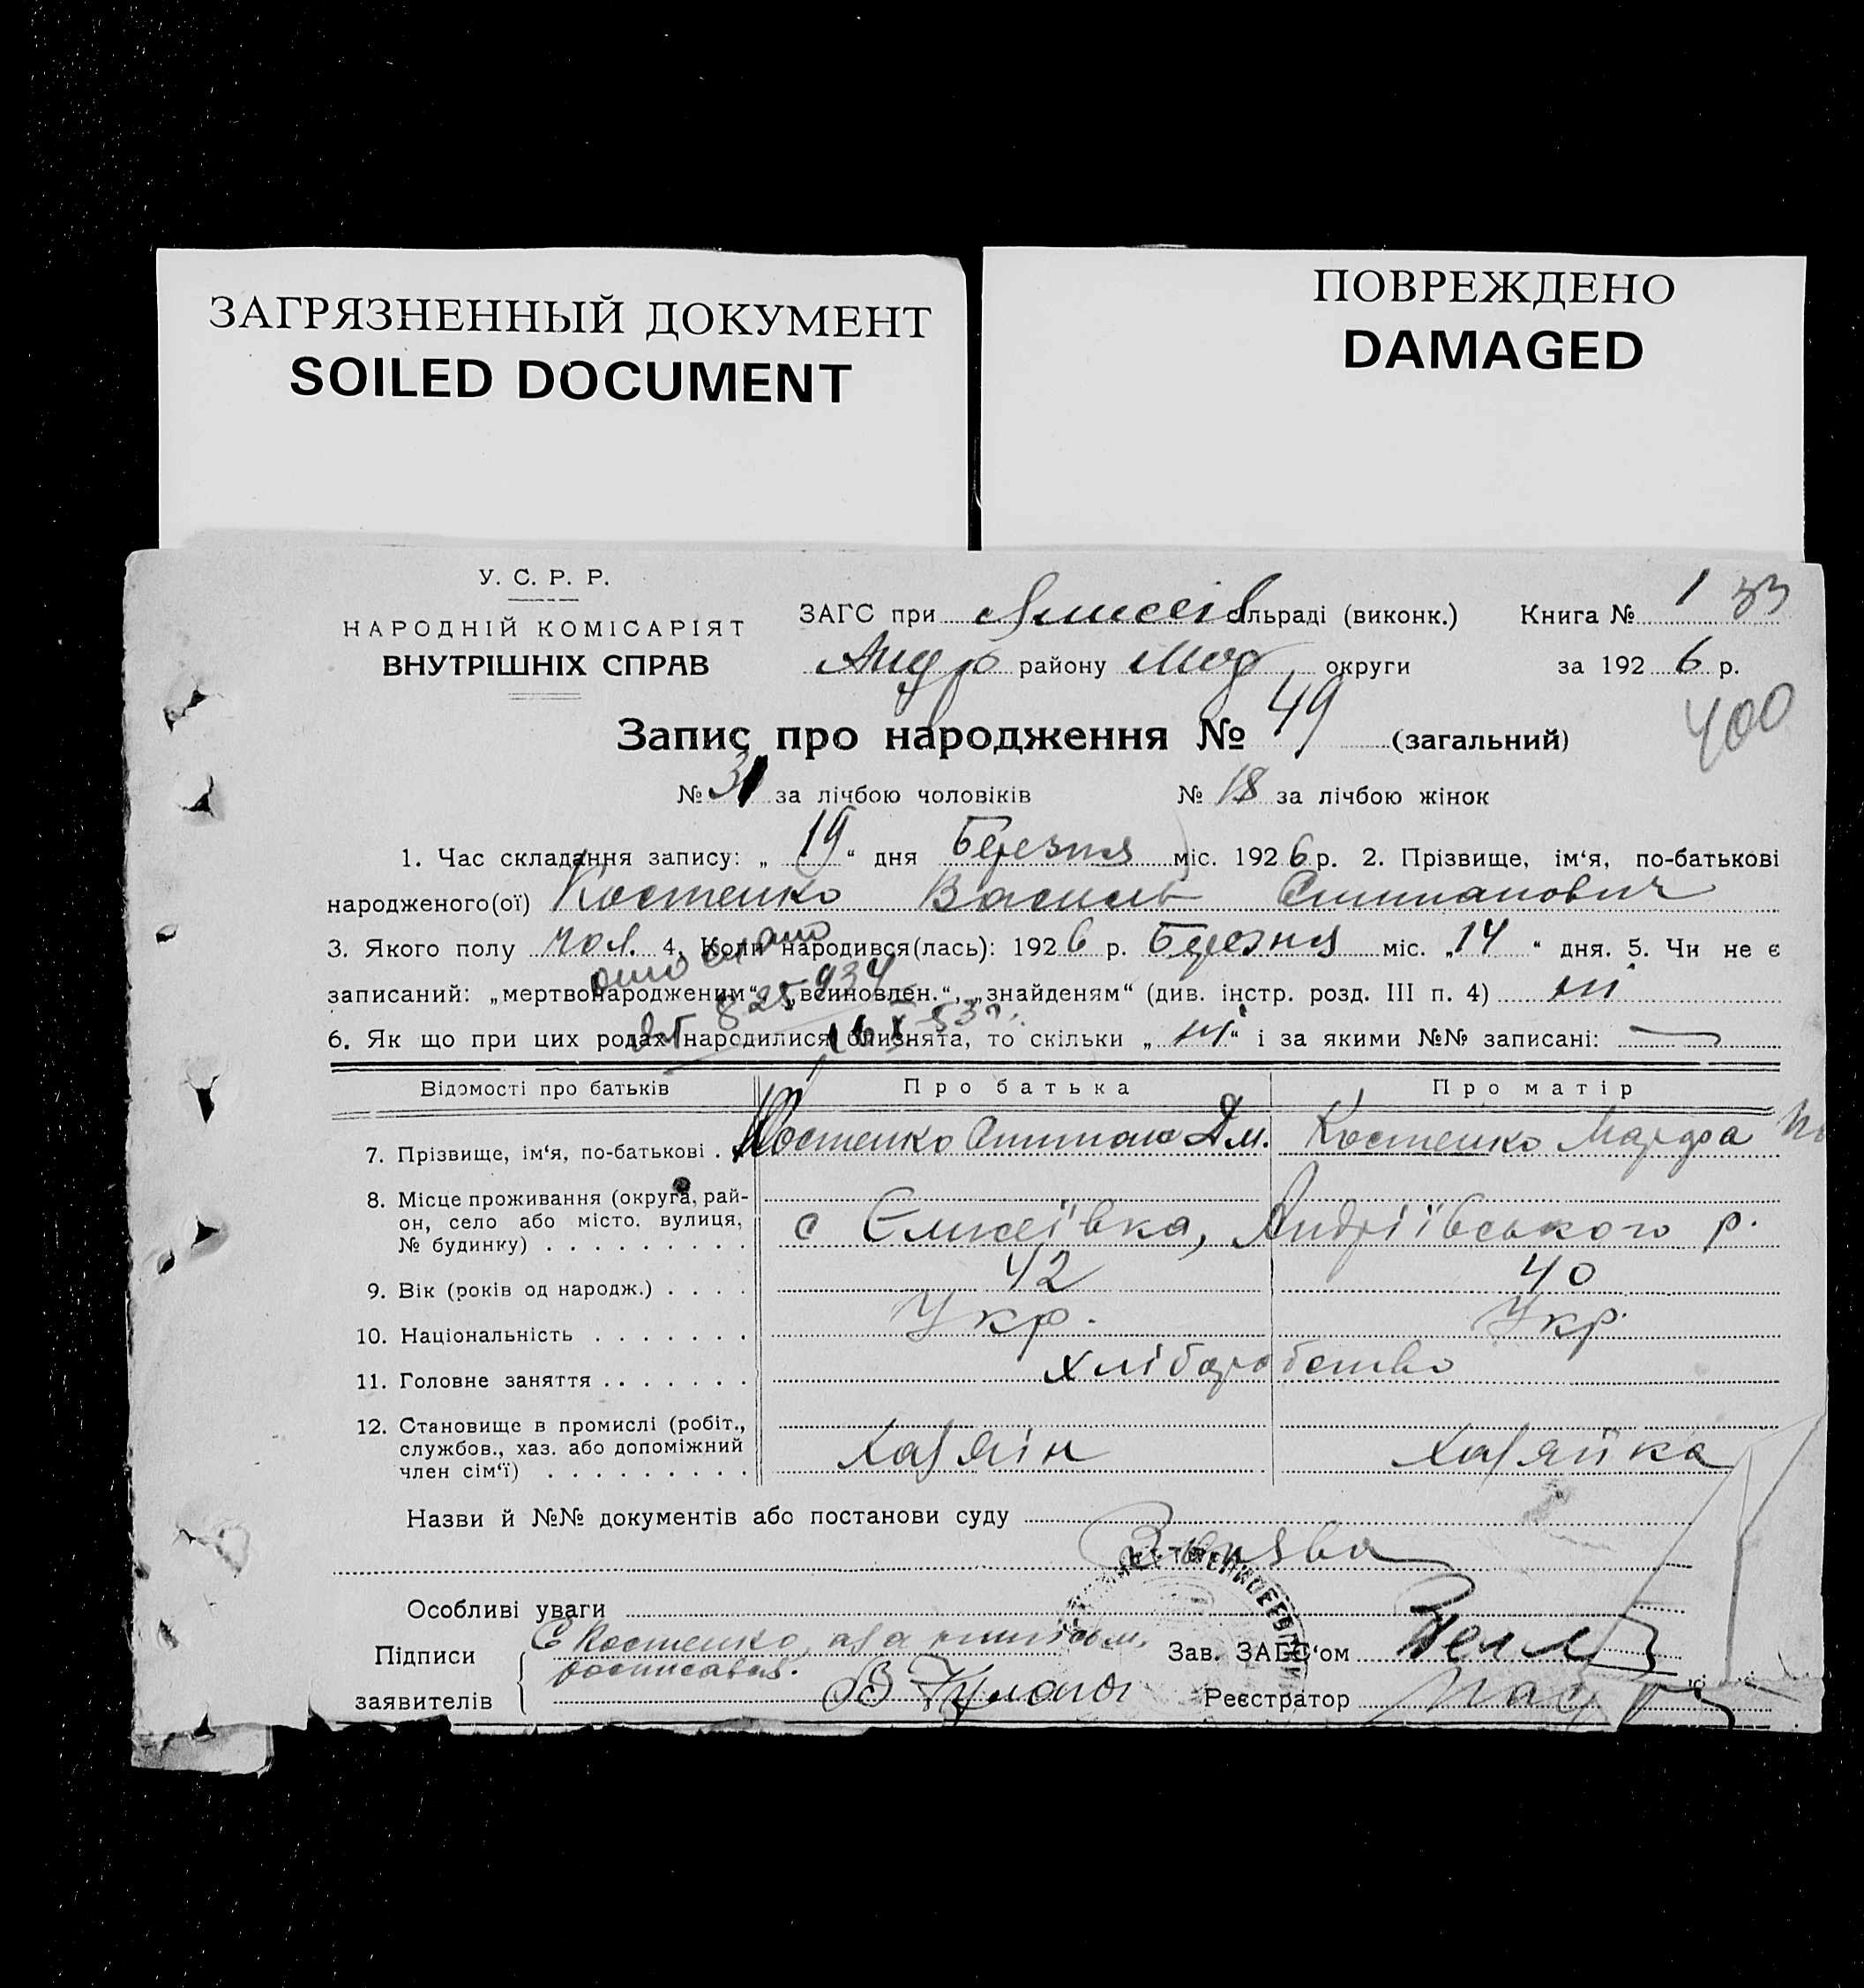 ЗАГРЯЗНЕННЫЙ ДОКУМЕНТ
SOILED DOCUMENT
ПОВРЕЖДЕНО
DAMAGED
У. С. Р. Р.
НАРОДНІЙ КОМІСАРІЯТ
ВНУТРІШНІХ СПРАВ
ЗАГС при сільраді (виконк.) Книга № 1 33
Андр району округи за 1926 р.
400
Запис про народження № 49 (загальний)
№ 31 за лічбою чоловіків № 18 за лічбою жінок
1. Час складання запису: „ 19 “ дня Березня міс. 1926 р. 2. Прізвище, ім‘я, по-батькові
народженого(ої) Костенко Василь Стипанович
3. Якого полу чол. 4. Коли народився(лась): 1926 р. Березня міс. „14 “ дня. 5. Чи не є
записаний: „мертвонародженим“, „всиновлен.“, „знайденям“ (див. інстр. розд. III п. 4) ні
6. Як що при цих родах народилися близнята, то скільки „ ні “ і за якими №№ записані: —
Відомості про батьків Про батька Про матір
7. Прізвище, ім‘я, по-батькові . Костенко Стипан Дм. Костенко Марфа
8. Місце проживання (округа, рай-
он, село або місто, вулиця,
№ будинку) . . . . . . . . . с Єлисеївка, Андріївського р.
9. Вік (років од народж.) . . . . 42 40
10. Національність . . . . . . . Укр. Укр.
11. Головне заняття . . . . . . . хліборобство
12. Становище в промислі (робіт.,
службов., хаз. або допоміжний
член сім‘ї) . . . . . . . . . Хазяїн Хазяйка
Назви й №№ документів або постанови суду
Заява
Особливі уваги
Підписи
заявителів
С Костенко, а за
росписався.
Зав. ЗАГС‘ом
Реєстратор